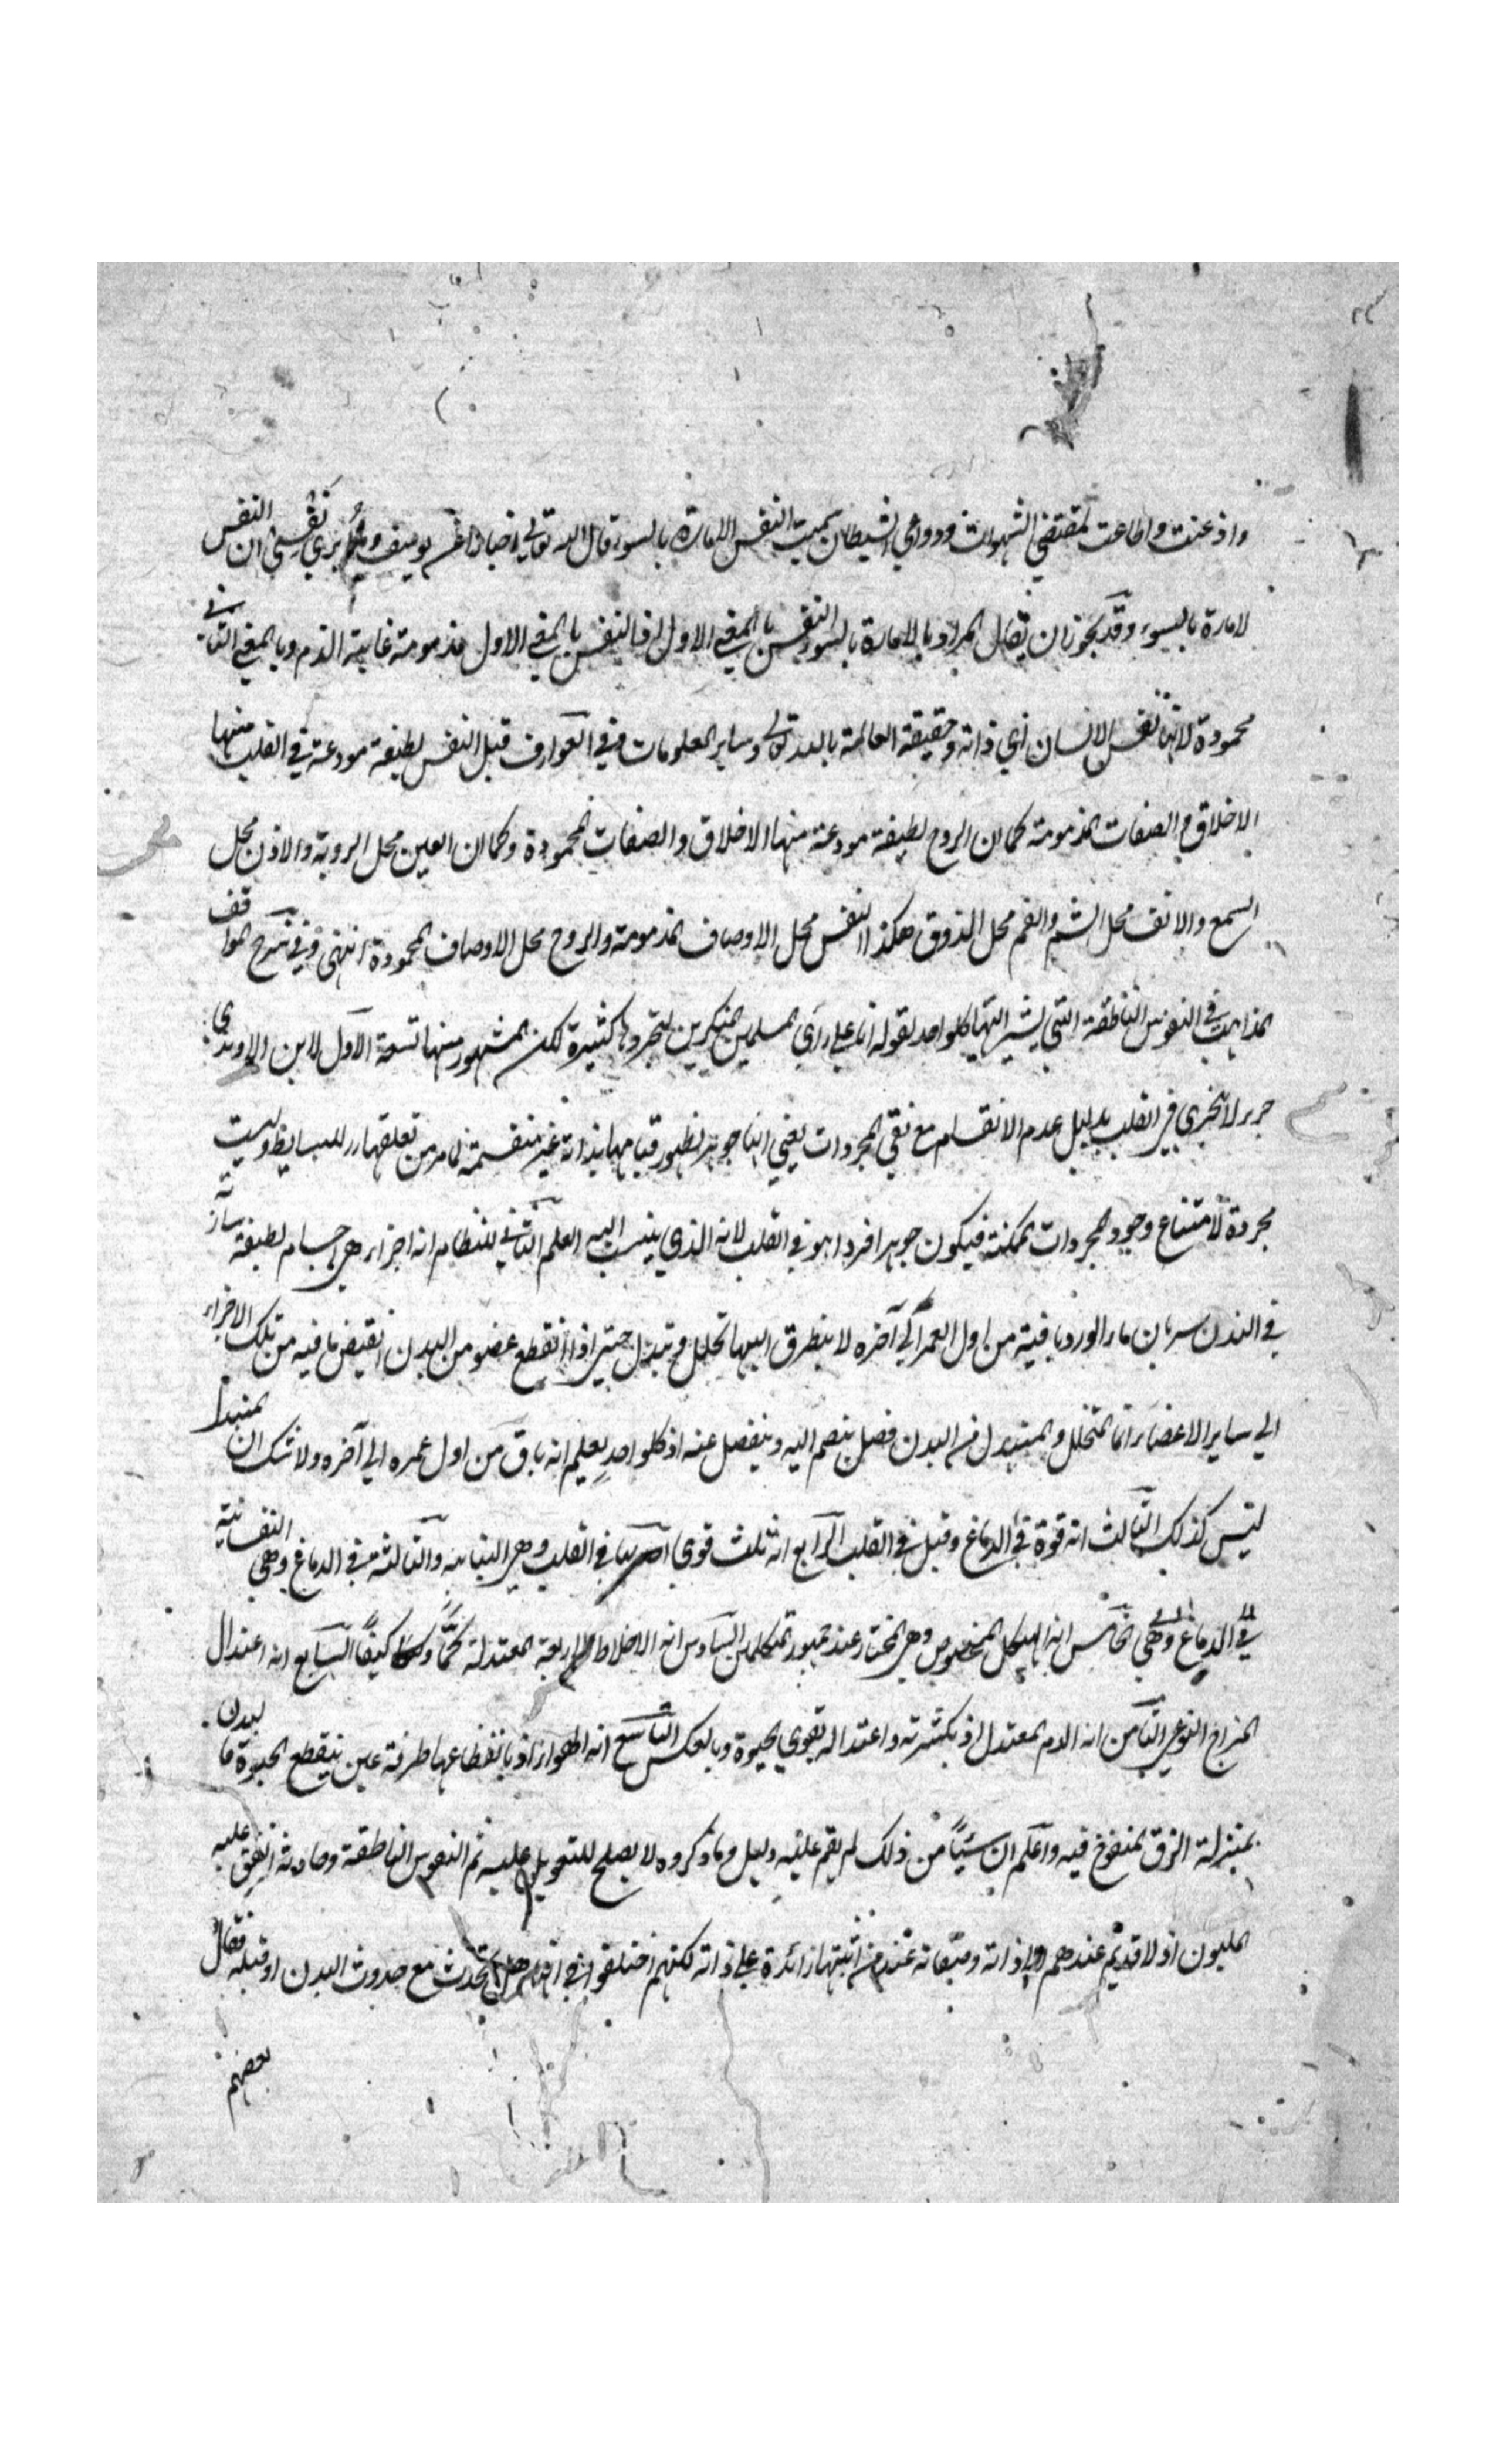 واذعنت واطاعت لمقتضي الشهوات ودواعي الشيطان سميت النفس الامارة بالسوء قال الله تعالي اخبارا عن يوسف وما ابري نفسي ان النفس
لامارة بالسوء وقد يجوز ان يقال المراد بالامارة بالسوء النفس بالمعني الاول اذ النفس بالمعني الاول مذمومة غاية الذم وبالمعني الثاني
محمودة لانها نفس الانسان اي ذاته وحقيقته العالمة بالله تعالي وساير المعلومات وفي العوارف قيل النفس لطيفة مودعة في القلب منها
الاخلاق و الصفات المذمومة كما ان الروح لطيفة مودعة منها الاخلاق والصفات المحمودة وكما ان العين محل الروية والاذن محل
السمع والانف محل الشم والفم محل الذوق هكذا النفس محل الاوصاف المذمومة والروح محل الاوصاف المحمودة انتهي وفي شرح المواقف
المذاهب في النفوس الناطقة التي يشير اليها كلواحد بقوله انا علي راي المسلمين المنكرين لتجردها كثيرة لكن المشهور منها تسعة الاول لابن الراوندي
جزء لا يتجزي في القلب بدليل عدم الانقسام مع نفي المجردات يعني انها جوهر لظهور قيامها بذاته غير منقسمة لما مر من تعلقها للبسايط وليست
مجردة لامتناع وجود المجردات الممكنة فيكون جوهرا فردا هو في القلب لانه الذي ينسب اليه العلم الثاني للنظام انه اجزاء هي اجسام لطيفة سارية
في البدن سريان ماء الورد باقية من اول العمر الي آخره لا يتطرق اليها تحلل و تبدل حتي اذا انقطع عضو من البدن انقبض ما فيه من تلك الاجزاء
الي ساير الاعضاء انما المتحلل والمتبدل من البدن فضل ينضم اليه وينفصل عنه اذ كلواحد يعلم انه باق من اول عمره الي آخره ولا شك ان المتبدل
ليس كذلك الثالث انه قوة في الدماغ وقيل في القلب الرابع انه ثلث قوي في القلب وهي والثالثة في الدماغ وهي النفسانية
في الدماغ وهي الخامس انه الهيكل المخصوص وهي المختار عند جمهور المتكلمين السادس انه الاخلاط الاربعة المعتدلة كما وكيفا السابع انه اعتدال
المزاج النوعي الثامن انه الدم المعتدل اذ بكثرته واعتداله تقوي الحيوة وبالعكس التاسع انه الهواء اذ بانقطاعها طرفة عين ينقطع الحيوة فالبدن
بمنزلة الزق المنفوخ فيه واعلم ان شيئا من ذلك لم يقم عليه دليل وما ذكروه لا يصلح للتعويل عليه ثم النفوس الناطقة وحادثة اتفق عليه
المليون اذ لا قديم عندهم الا ذاته وصفاته عند من اثبتها زائدة علي ذاته لكنهم اختلفوا في انها هل تحدث مع حدوث البدن او قبله فقال
بعضهم